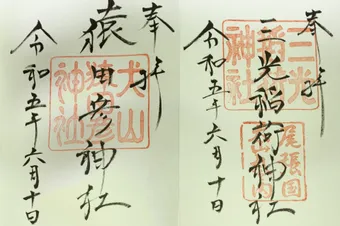 奉拝
猿田彦神社
犬山
猿田彦
神社
令和五年六月十日
奉拝
三光稲荷神社
三光
稲荷
神社
尾張国
令和五年六月十日